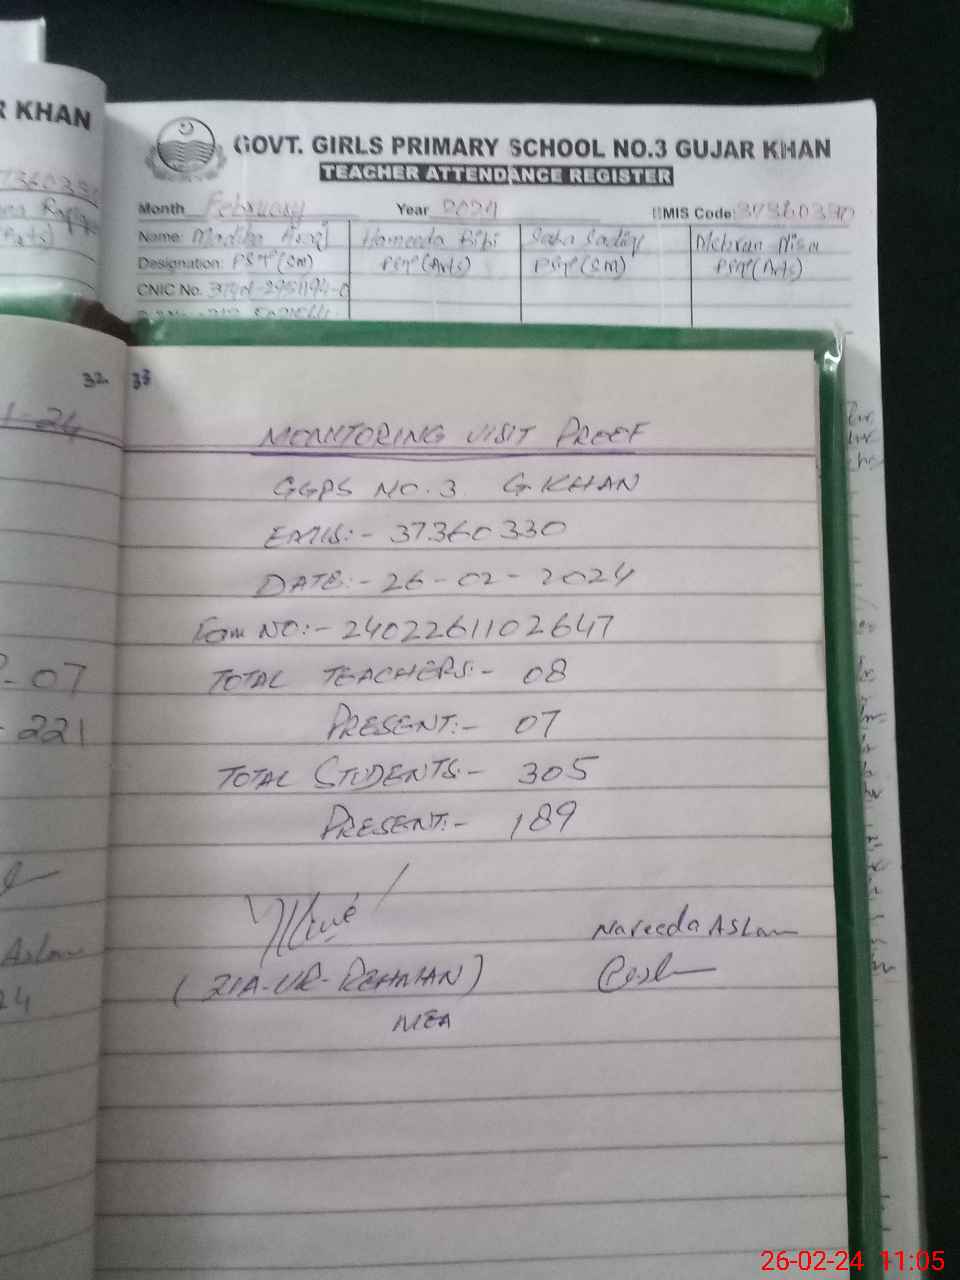 R KHAN
GOVT. GIRLS PRIMARY SCHOOL NO.3 GUJAR KHAN
TEACHER ATTENDANCE REGISTER
Month February Year 2024 EMIS Code: 37360330
Name: Madiha Hameeda Bibi Saba Sadiq Mehran Nisa
Designation: PST (SM) PST (Arts) PST (SM) PST (Arts)
CNIC No.
32. 33
1-24
MONITORING VISIT PROOF
GGPS NO. 3 G.KHAN
EMIS:- 37360330
DATE:- 26-02-2024
Form NO:- 2402261102647
TOTAL TEACHERS:- 08
- 07
PRESENT:- 07
- 221
TOTAL STUDENTS:- 305
PRESENT:- 189
Naveeda Aslam
Aslam
(ZIA-UR-REHMAN)
24
MEA
26-02-24 11:05